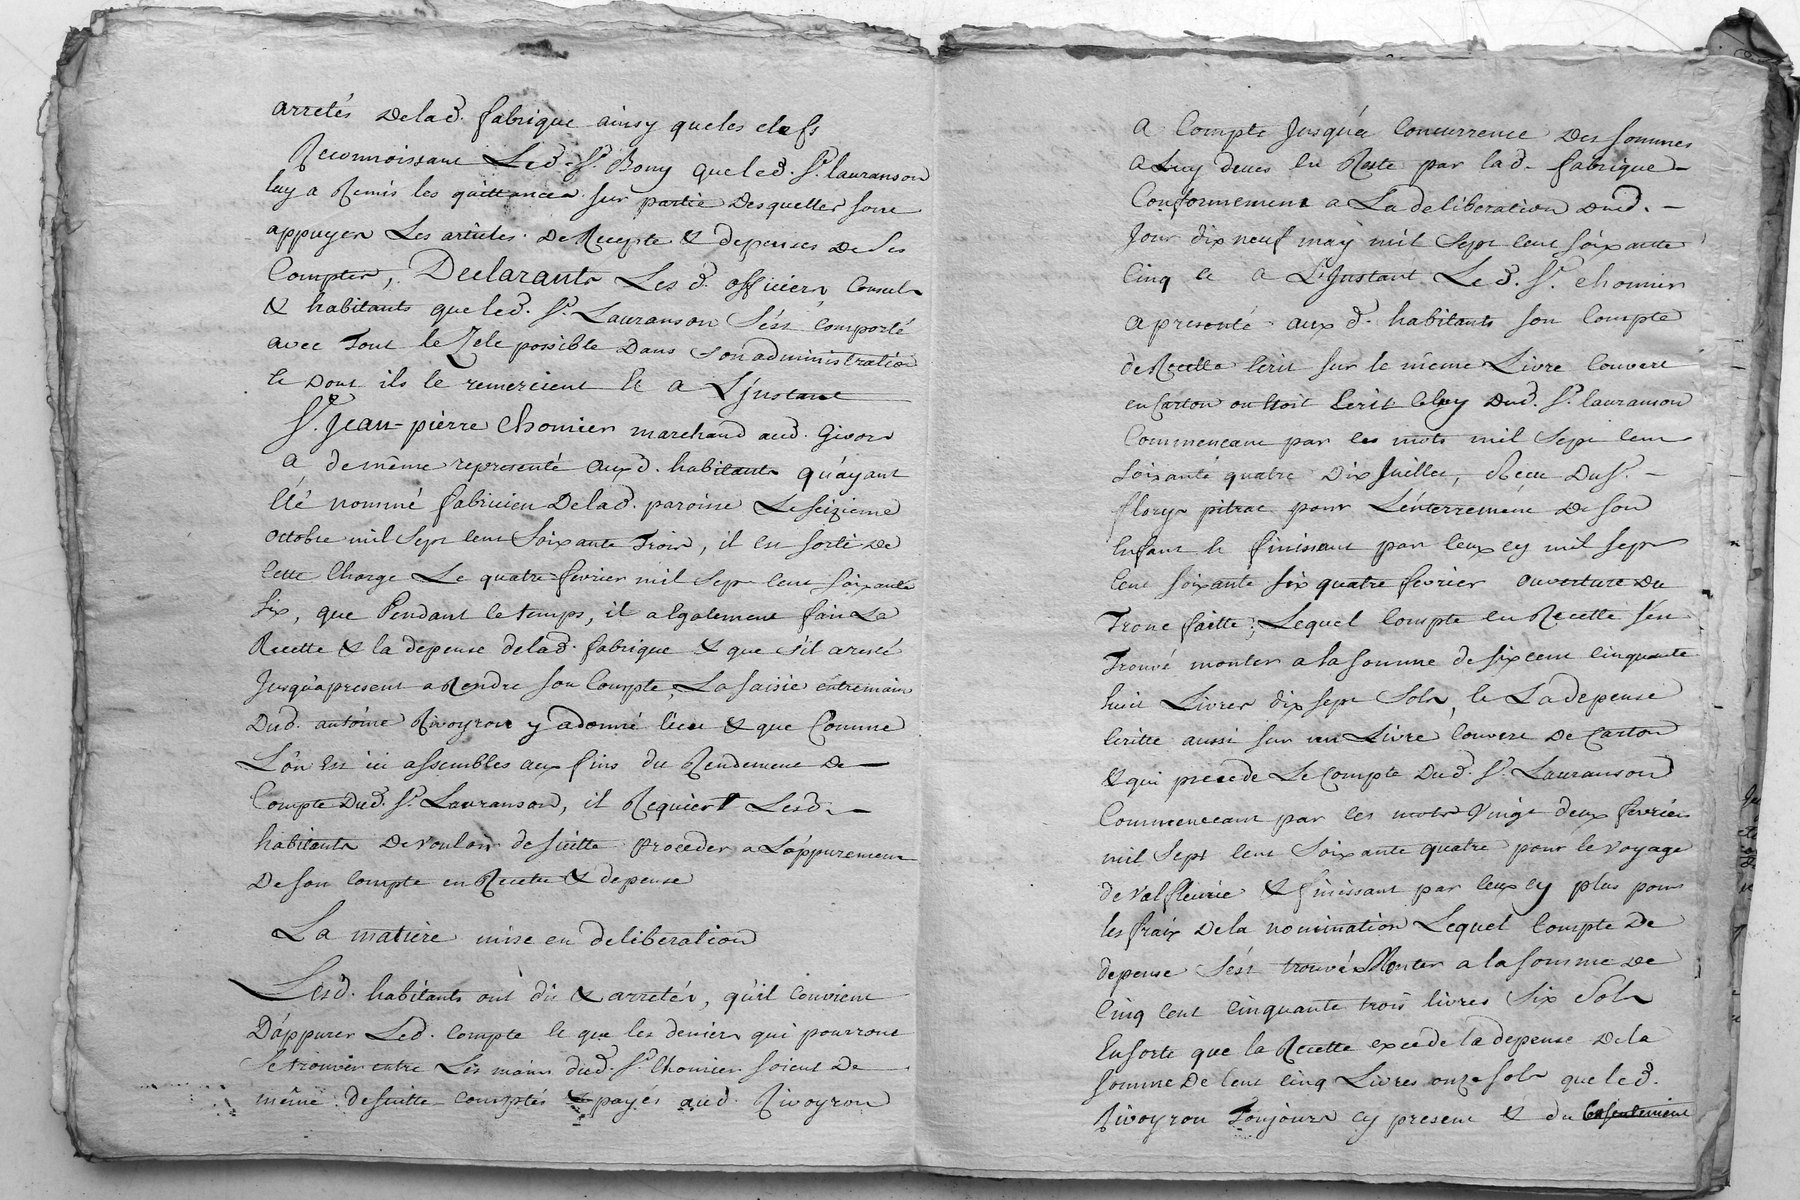 arretés de lad. fabrique ainsy que les clefs
Reconnoissant Led. Sr. Bony que led. Sr. lauranson
luy a Remis les quittances sur partie desquelles sont
appuyer Les articles de Recepte & depenses de ses
Comptes, Declarants Les d. officiers, Consuls
& habitants que led. Sr. Lauranson s'est comporté
avec Tout le Zele possible dans son administration
& dont ils le remercient Et a L'jnstant
Sr. Jean-pierre Chomier marchand aud. Givors
a de même representé auxd. habitants qu'ayant
Eté nommé fabricien de lad. paroisse Le seizieme
octobre mil sept cent soixante Trois, il en sorti de
cette Charge Le quatre fevrier mil sept cent soixante
six, que Pendant ce temps, il a Egalement fait La
Recette & la depense de lad. fabrique & que s'il a resté
jusqu'apresent a Rendre son Compte, La saisie entremain
Dud. antoine Rivoyron y a donné lieu & que Comme
L'on Est ici assembles aux fins du Rendement de
Compte dud. Sr. Lauranson, il Requiert Lesd.
habitants de vouloir de suitte proceder a L'appurement
de son compte en Recette & depense
La matiere mise en deliberation
Lesd. habitants ont dit & arretés, qu'il convient
D'appurer Led. compte Et que les deniers qui pourront
se trouver entre Les mains dud. Sr. Chomier soient de
même de suitte comptés & payés aud. Rivoyron
a Compte jusqu'a Concurrence des sommes
a Luy deues en Reste par lad. fabrique
Conformement a La deliberation dud.
jour dix neuf may mil sept cent soixante
cinq Et a L'jnstant Led. Sr. Chomier
a presenté aux d. habitants son Compte
de Recette Ecrit sur le même Livre Couvert
en Carton ou Etoit Ecrit Celuy dud. Sr. lauranson
Commencant par les mots mil sept cent
soixante quatre Dix juillet, Receu du Sr.
flory pitrat pour L'enterrement de son
Enfant & finissant par Ceux cy mil sept
cent soixante six quatre fevrier ouverture du
Tronc faitte, Lequel Compte en Recette s'est
Trouvé monter a la somme de six cent cinquante
huit Livres dix sept sols, & La depense
Ecritte aussi sur un Livre Couvert de Carton
& qui precede Le Compte dud. Sr. Lauranson
Commencant par les mots Vingt deux fevrier
mil sept cent soixante quatre pour le voyage
de valfleurie & finissant par Ceux cy plus pour
les fraix de la nomination Lequel Compte de
depense s'est trouvé Monter a la somme de
Cinq Cent Cinquante trois livres six sols
Ensorte que la Recette excede la depense de la
somme de Cent Cinq Livres onze sols que led.
Rivoyron Toujours cy present & du Consentement